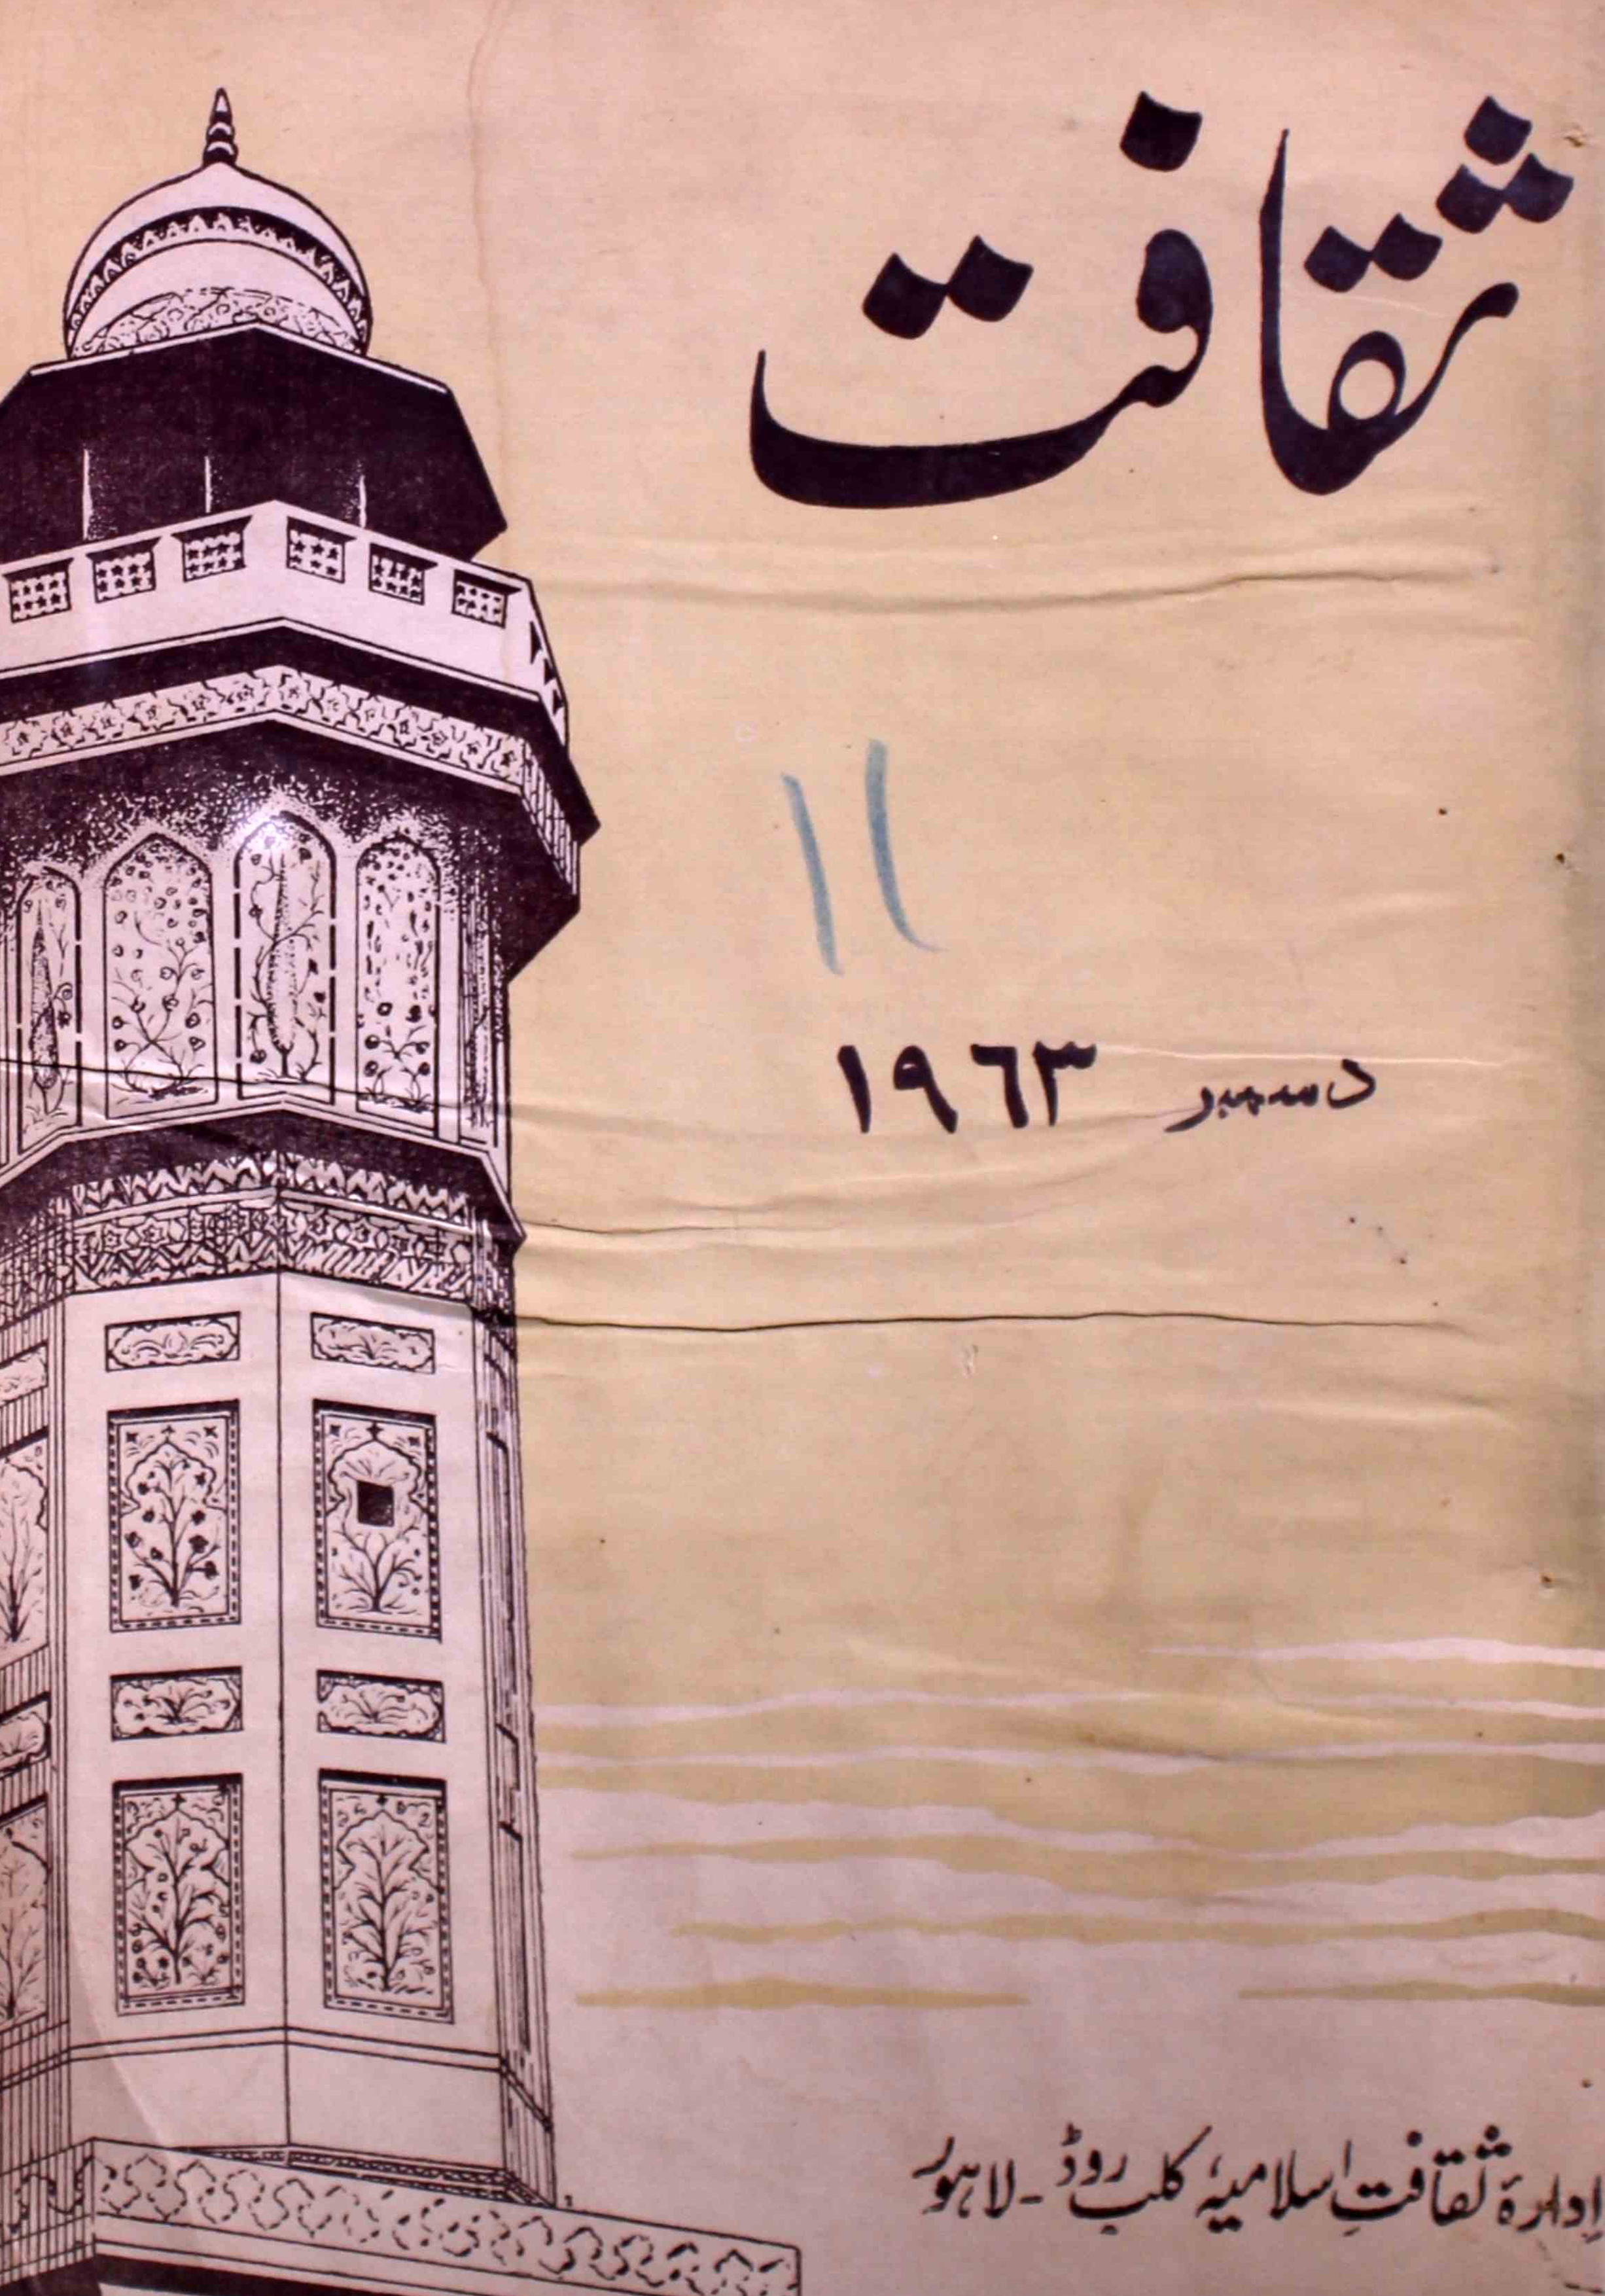 ثقافت
۱۱
دسمبر ١٩٦٣
ادارۂ ثقافتِ اسلامیہ کلب روڈ - لاہور